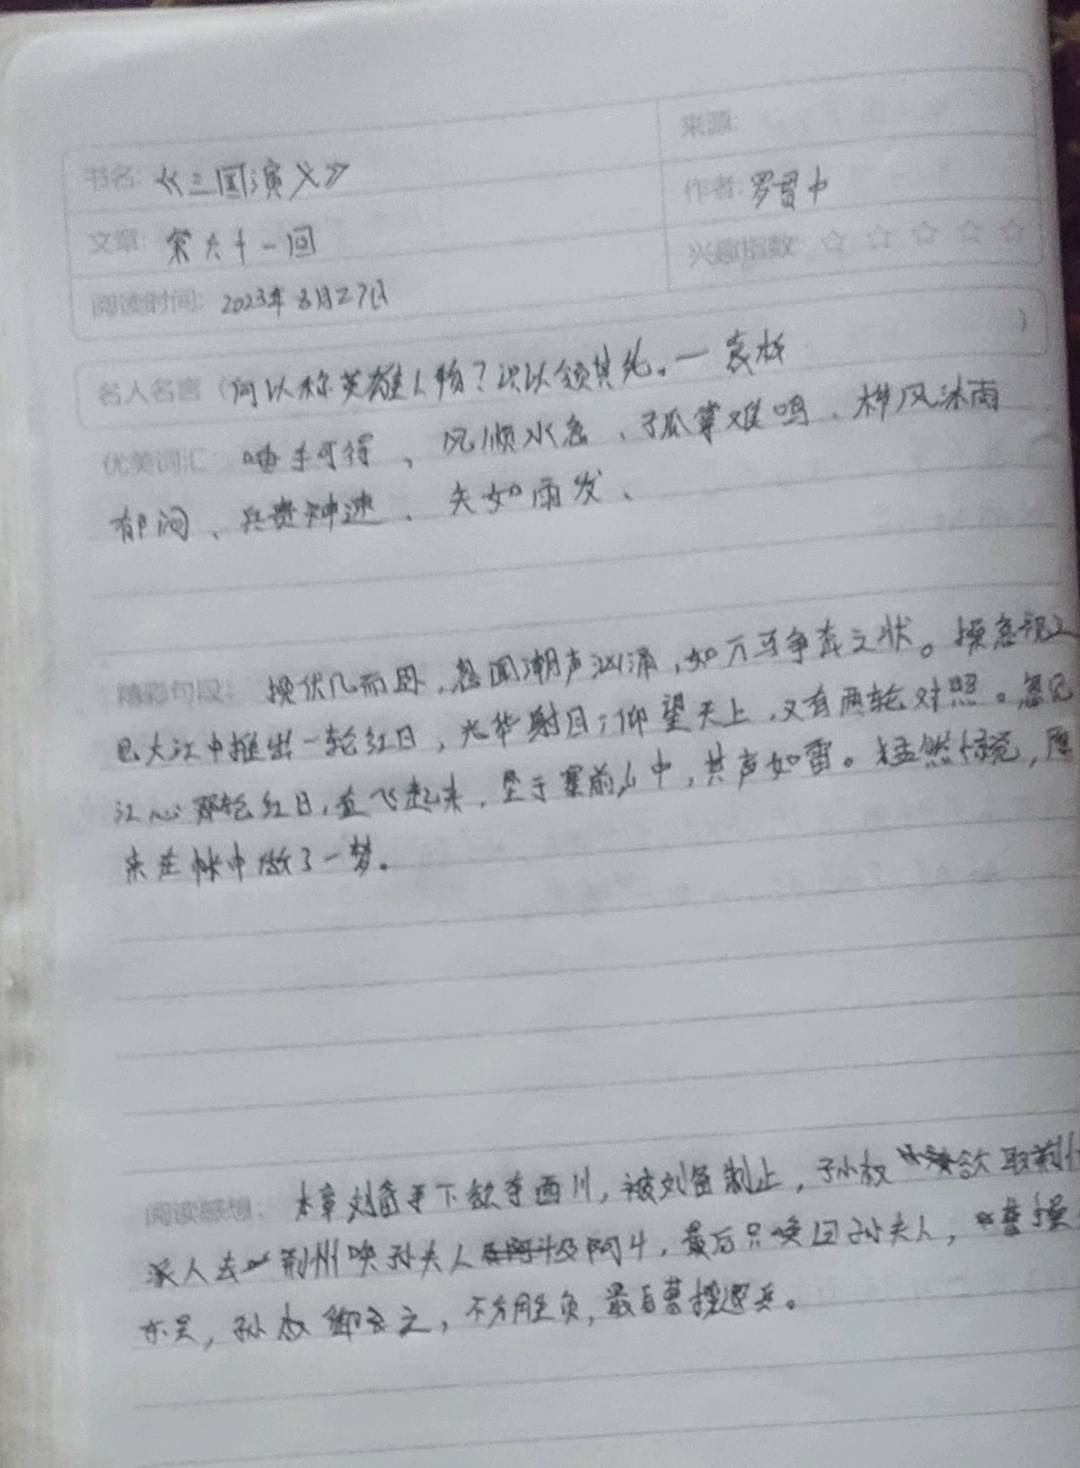 来源:
书名: 《三国演义》
作者: 罗贯中
文章: 第六十一回
兴趣指数: ☆ ☆ ☆ ☆ ☆
阅读时间: 2023年8月27日
名人名言 (何以称英雄人物?识以领其先。— 袁枚 )
优美词汇: 唾手可得、风顺水急、孤掌难鸣、栉风沐雨
郁闷、兵贵神速、矢如雨发、
精彩句段: 操伏几而卧,忽闻潮声汹涌,如万马争奔之状。操急视之
见大江中推出一轮红日,光华射目;仰望天上,又有两轮对照。忽见
江心那轮红日,直飞起来,坠于寨前山中,其声如雷。猛然惊觉,原
来在帐中做了一梦。
阅读感想: 本章刘备手下欲夺西川,被刘备制止,孙权欲取荆
派人去荆州唤孙夫人及阿斗,最后只唤回孙夫人,曹操
东吴,孙权御之,不分胜负,最后曹操退兵。